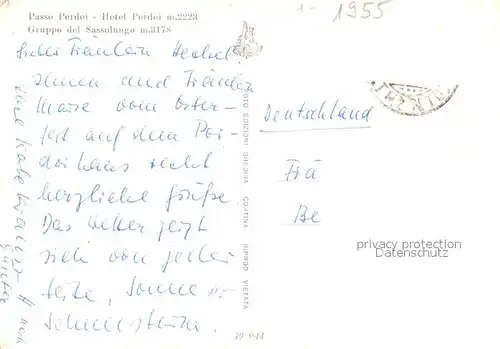 Passo Perdoi - Hotel Perdoi m.2223
Gruppo del Sassolungo m.3178
1955
Fräulein
Ihnen und Fräulein
Marie vom Oster-
fest auf dem Por-
doihaus recht
herzliche Grüße.
Das Wetter zeigt
sich von jeder
Seite, Sonne u.
Schneesturm.
Deutschland
Frä
Be
privacy protection
Datenschutz
FOTO EDIZIONI GHEDINA - CORTINA RIPROD. VIETATA
19 944